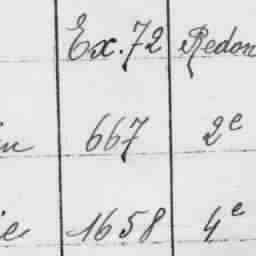 Ex. 72 Redon
in 667 2e
ie 1658 4e